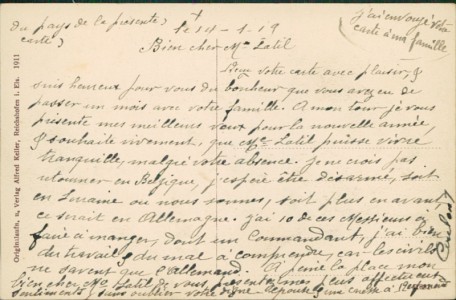 Du pays de la présente
carte)
le 14-1-19
j'ai envoyé votre
carte à ma famille
Bien cher Mr Latil
Reçu votre carte avec plaisir, je
suis heureux pour vous du bonheur que vous avez eu de
passer un mois avec votre famille. A mon tour je vous
présente mes meilleurs vœux pour la nouvelle année,
je souhaite vivement, que Mme Latil puisse vivre
tranquille, malgré votre absence. je ne crois pas
retourner en Belgique, j'espère être désarmé, soit
en Lorraine où nous sommes, soit plus en avant
ce serait en Allemagne. j'ai 10 de ces Messieurs à
faire à manger, dont un Commandant, j'ai bien
du travail, du mal à comprendre, car les civils
ne savent que l'Allemand. A peine la place mon
bien cher Mr Latil de vous présenter mes plus affectueux
sentiments, sans oublier votre digne épouse
Originalaufn. u. Verlag Alfred Keller, Reichshofen i. Els. 1911